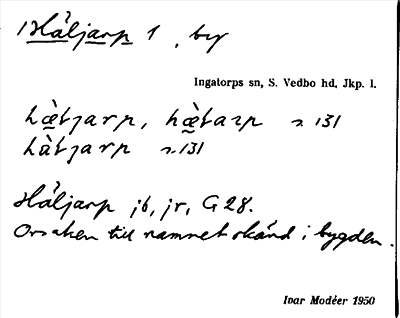 Häljarp 1, by
Ingatorps sn, S. Vedbo hd, Jkp. l.
hæ̀ljarp, hæ̀larp s. 131
hàljarp s. 131
Häljarp jb, jr, G 28.
Orsaken till namnet okänd i bygden.
Ivar Modéer 1950